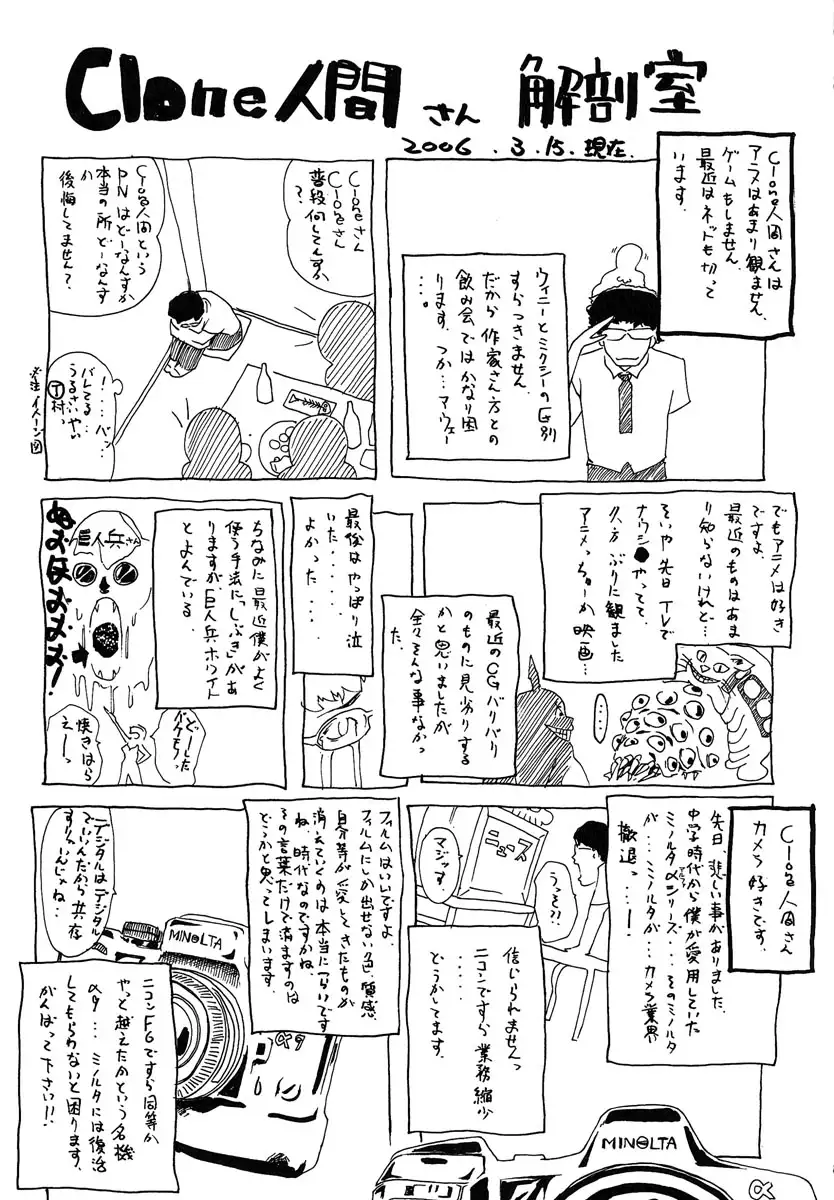 Clone人間さん 解剖室
2006.3.15.現在.
Clone人間さんは
アニメはあまり観ません.
ゲームもしません
最近はネットも切って
います。
ウィニーとミクシーの区別
すらつきません
だから作家さん方との
飲み会ではかなり困
ります。つか…アウェー
…。
Cloneさん
Cloneさん
普段何してんすか
?
Clone人間という
PNはどーなんすか
本当の所どーなんす
か
後悔してません?
!…バッ…
バレてる…
うるさいやい
T村っ
※注 イメージ図
でもアニメは好き
ですよ、
最近のものはあま
り知らないけれど…
そいや先日TVで
ナウシ●やってて
久方ぶりに観ました
アニメっちゅーか映画…
・・・・
最近のCGバリバリ
のものに見劣りする
かと思いましたが
全々そんな事なかっ
た。
最後はやっぱり泣
いた.....
よかった....
ちなみに最近僕がよく
使う手法に「しぶき」があ
りますが、巨人兵ホワイト
とよんでいる。
巨人兵さん
ぬおほおおお!
どーした
バケモノっ
焼きはら
えーっ
Clone人間さん
カメラ好きです。
先日、悲しい事がありました。
中学時代から僕が愛用していた
ミノルタαシリーズ・・・そのミノルタ
アルファ
が・・・ミノルタが・・・カメラ業界
撤退っ…!
ニュース
うっそ?!
マジッすか
信じられませんっ
....
ニコンですら業務縮少
どうかしてます。
フィルムはいいですよ.
フィルムにしか出せない色、質感
自分等が愛してきたものが
消えていくのは本当につらいです
ね、時代なのですかね、
その言葉だけで済ますのは
どうかと思ってしまいます。
デジタルはデジタル
でいいんだから共存
すりゃいいんじゃね..
ニコンF6ですら同等か
やっと越えたかという名機
α9...ミノルタには復活
してもらわないと困ります。
がんばって下さい!!
MINOLTA
α9
MINOLTA
α